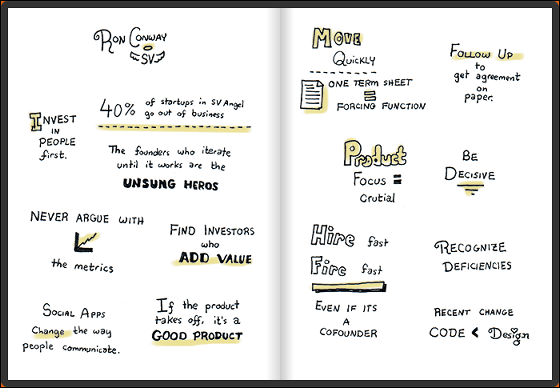 RON CONWAY
SV
INVEST
IN
PEOPLE
first.
40% of startups in SV Angel
go out of business
The founders who iterate
until it works are the
UNSUNG HEROS
NEVER ARGUE WITH
the metrics
FIND INVESTORS
who
ADD VALUE
SOCIAL APPS
Change the way
people communicate.
If the product
takes off, it's a
GOOD PRODUCT
MOVE
QUICKLY
ONE TERM SHEET
=
FORCING FUNCTION
FOLLOW UP
to
get agreement
on
paper.
Product
Focus =
Crutial
BE
DECISIVE
Hire fast
Fire fast
EVEN IF ITS
A
COFOUNDER
RECOGNIZE
DEFICIENCIES
RECENT CHANGE
CODE < Design